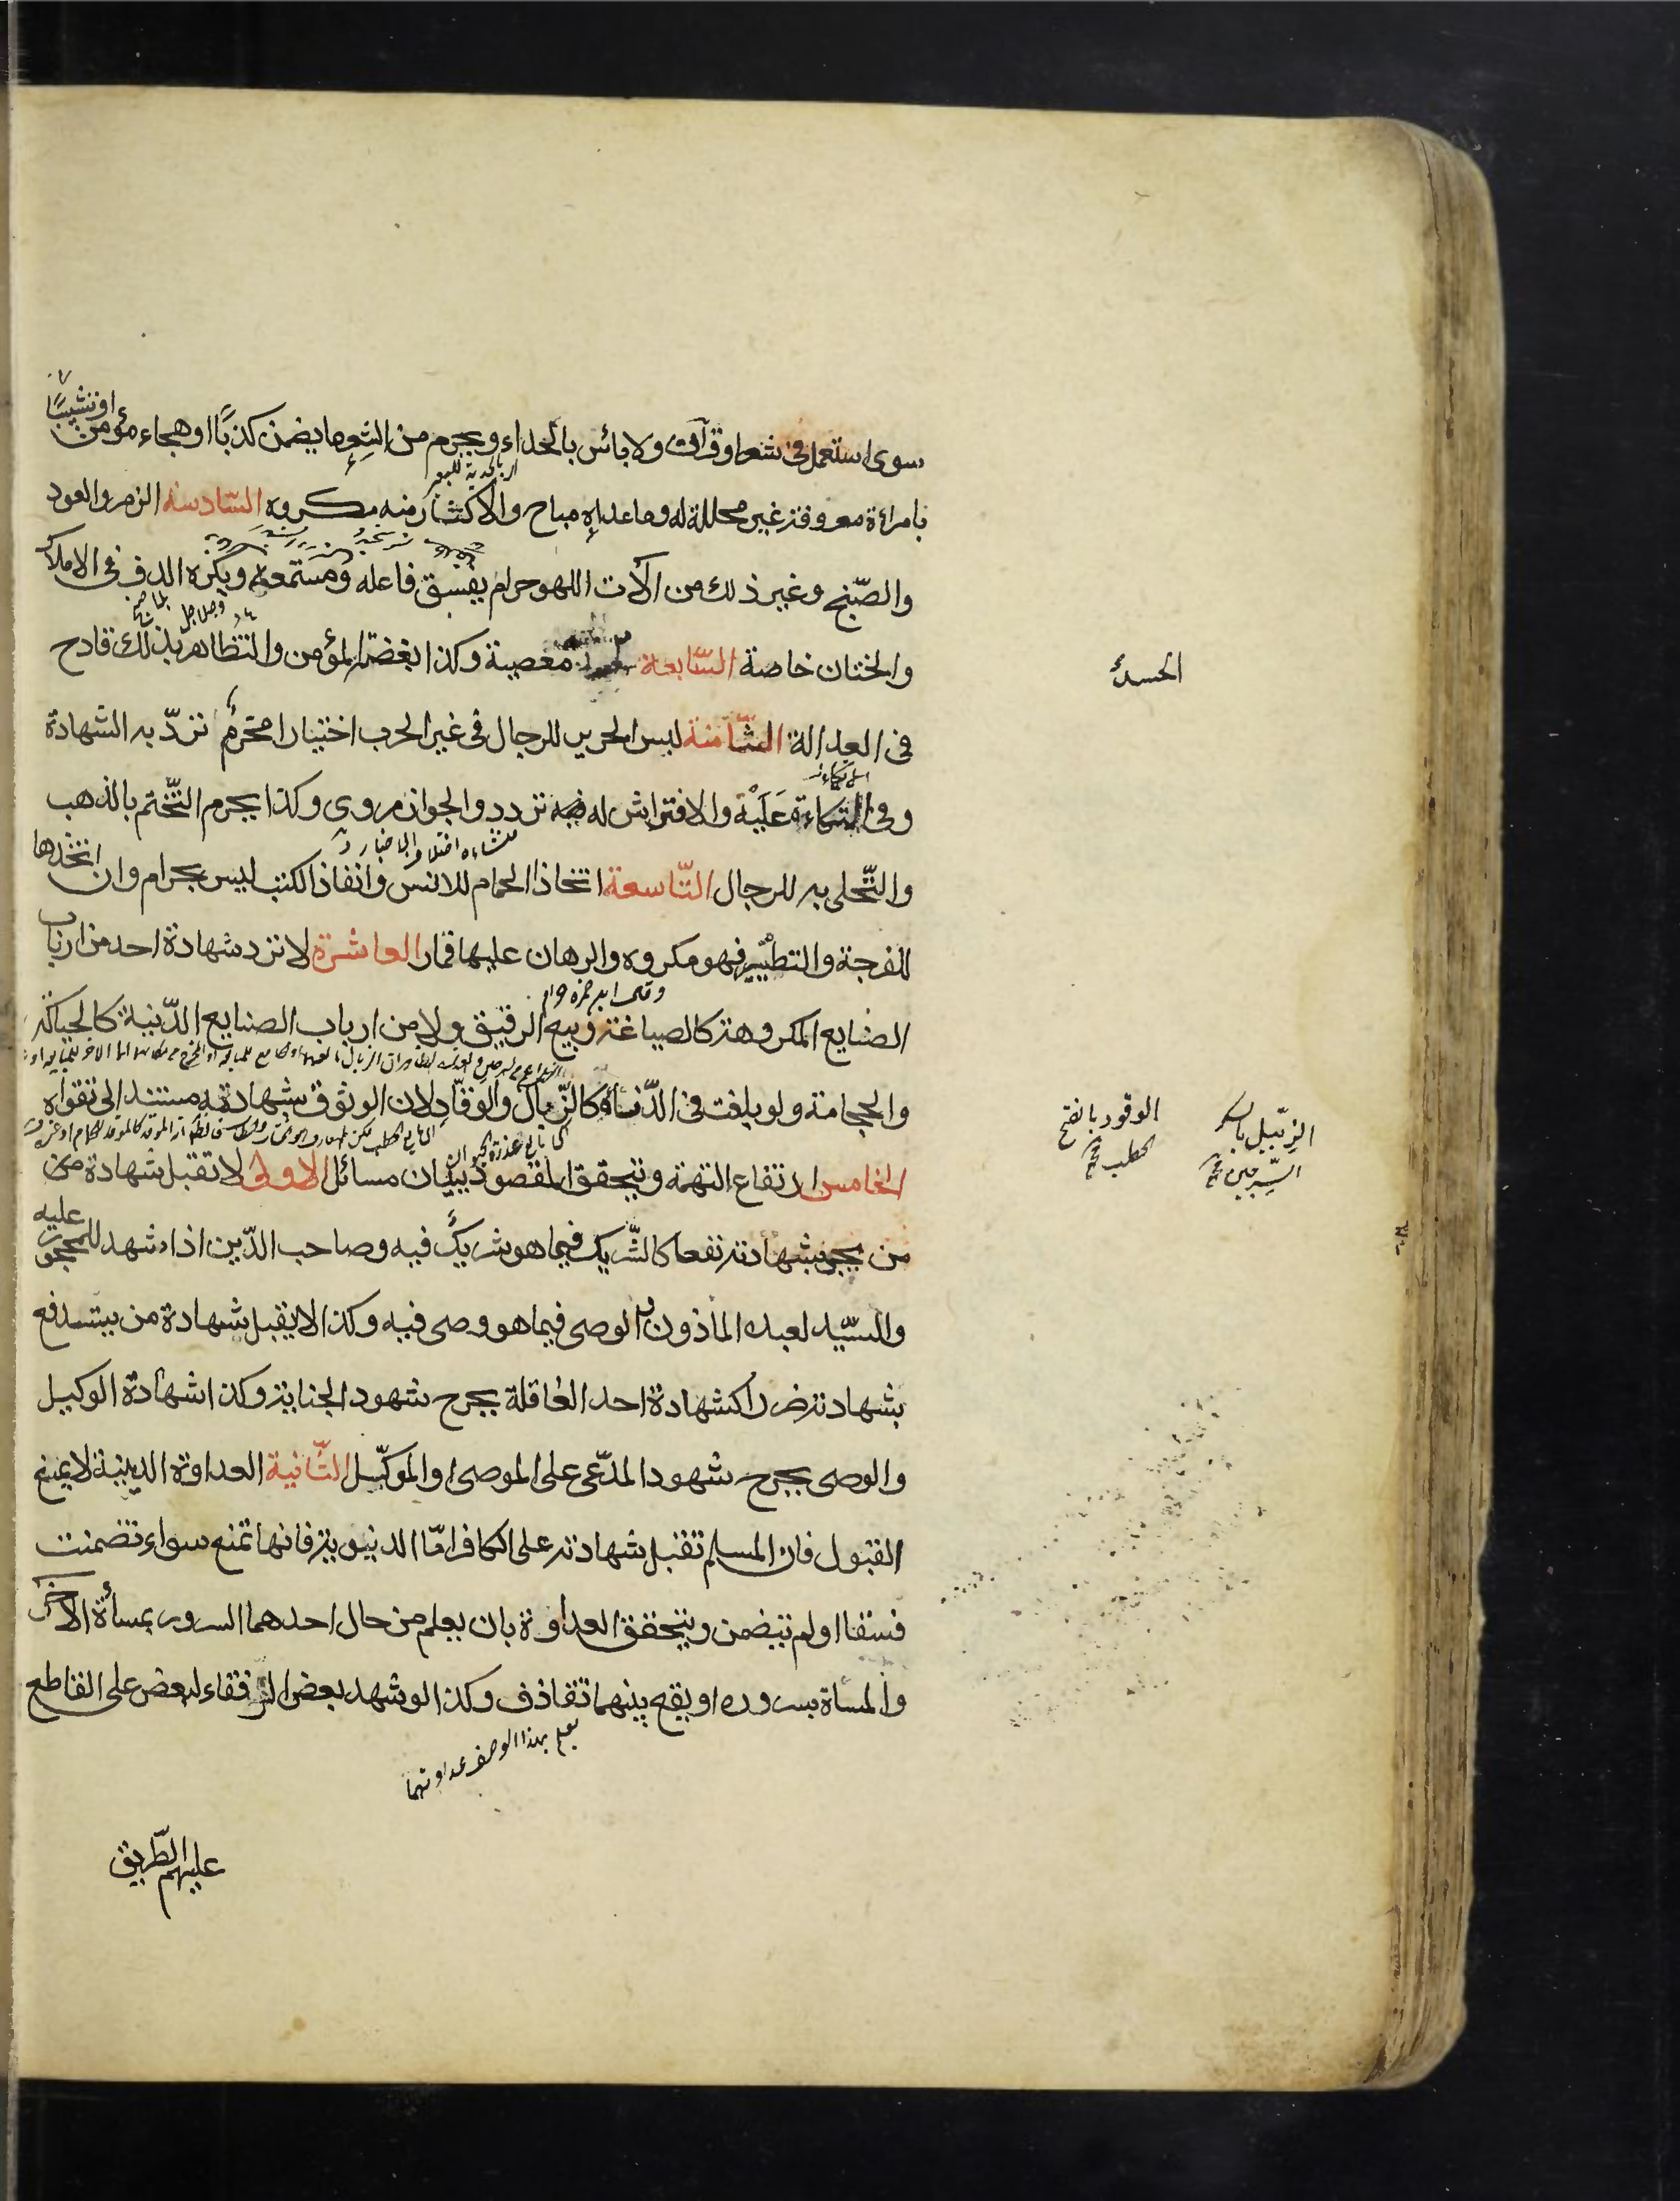 سوى استعمل فى شعر او قرآن ولا بائس بالحداء ويحرم من الشعر ما يضمن كذبًا او هجاء مؤمن او تشبيبًا
بامراءة معروفة غير محللة له وما عداه مباح والاكثار منه مكروه السّادسة الزمر والعود
والصّنج وغير ذلك من آلات اللهو حرام يفسق فاعله ومستمعه ويكره الدف فى الاملاك
والختان خاصة السّابعة معصية وكذا بغضة المؤمن والتظاهر بذلك قادح
الحسد
فى العدالة الثّامنة لبس الحرير للرجال فى غير الحرب اختيارا محرم تردّ به الشهادة
وفى التكاءة عَلَيْه والافتراش له تردد والجواز مروى وكذا يحرم التّختم بالذهب
والتّحلى به للرجال التّاسعة اتخاذ الحمام للانس وانفاذ الكتب ليس بحرام وان اتخذها
للفرجة والتطيير فهو مكروه والرهان عليها قمار العاشرة لا ترد شهادة احد من ارباب
الصنايع المكروهة كالصياغة وبيع الرقيق ولا من ارباب الصنايع الدّنية كالحياكة
والحجامة ولو بلغت فى الدّناءة كالزّبال والوقّاد لان الوثوق بشهادته مستند الى تقواه
الوقود بالفتح
الحطب
الزبّيل بالكسر
السّرجين
الخامس ارتفاع التهمة ويتحقق المقصود ببيان مسائل الاولى لا تقبل شهادة من
من يجر بشهادته نفعا كالشّريك فيما هو شريكٌ فيه وصاحب الدّين اذا شهد للمحجور عليه
والسّيد لعبده الماذون والوصى فيما هو وصى فيه وكذا لا يقبل شهادة من يستدفع
بشهادته ضررا كشهادة احد العاقلة بجرح شهود الجناية وكذا شهادة الوكيل
والوصى بجرح شهود المدّعى على الموصى او الموكّل الثّانية العداوة الدينية لا يمنع
القبول فان المسلم تقبل شهادته على الكافر امّا الدنيوية فانها تمنع سواء تضمنت
فسقا او لم تتضمن ويتحقق العداوة بان يعلم من حال احدهما السرور بمسأة الاخر
والمساة بسروره او يقع بينهما تقاذف وكذا لو شهد بعض الرفقاء لبعض على القاطع
يعلم بهذا الوصف عداوتهما
عليهم الطّريق